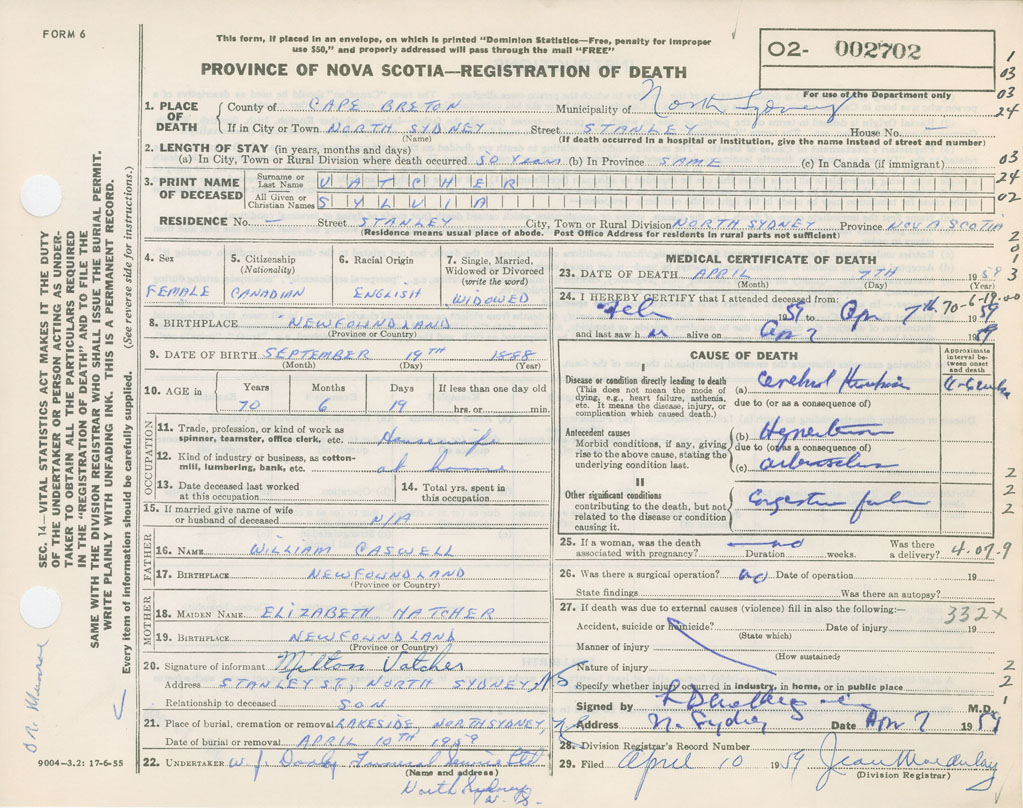 FORM 6
This form, if placed in an envelope, on which is printed "Dominion Statistics—Free, penalty for improper
use $50," and properly addressed will pass through the mail "FREE"
PROVINCE OF NOVA SCOTIA—REGISTRATION OF DEATH
O2- 002702
For use of the Department only
1
03
03
24
1. PLACE OF DEATH County of CAPE BRETON Municipality of North Sydney
If in City or Town NORTH SYDNEY Street STANLEY House No. —
(Name) (If death occurred in a hospital or institution, give the name instead of street and number)
2. LENGTH OF STAY (in years, months and days)
(a) In City, Town or Rural Division where death occurred 50 Years (b) In Province SAME (c) In Canada (if immigrant)
03
24
02
3. PRINT NAME OF DECEASED
Surname or Last Name VATCHER
All Given or Christian Names SYLVIA
RESIDENCE No. — Street STANLEY City, Town or Rural Division NORTH SYDNEY Province NOVA SCOTIA
(Residence means usual place of abode. Post Office Address for residents in rural parts not sufficient)
2
0
1
3
4. Sex
FEMALE
5. Citizenship
(Nationality)
CANADIAN
6. Racial Origin
ENGLISH
7. Single, Married, Widowed or Divorced
(write the word)
WIDOWED
8. BIRTHPLACE NEWFOUNDLAND
(Province or Country)
9. DATE OF BIRTH SEPTEMBER 19TH 1888
(Month) (Day) (Year)
10. AGE in Years Months Days If less than one day old
70 6 19 hrs. or min.
OCCUPATION
11. Trade, profession, or kind of work as
spinner, teamster, office clerk, etc. Housewife
12. Kind of industry or business, as cotton-
mill, lumbering, bank, etc. at home
13. Date deceased last worked
at this occupation
14. Total yrs. spent in
this occupation
15. If married give name of wife
or husband of deceased N/A
FATHER
16. NAME WILLIAM CASWELL
17. BIRTHPLACE NEWFOUNDLAND
(Province or Country)
MOTHER
18. MAIDEN NAME ELIZABETH HATCHER
19. BIRTHPLACE NEWFOUNDLAND
(Province or Country)
20. Signature of informant Milton Vatcher
Address STANLEY ST., NORTH SYDNEY, NS
Relationship to deceased SON
21. Place of burial, cremation or removal LAKESIDE, NORTH SYDNEY, N.S.
Date of burial or removal APRIL 10TH 1959
22. UNDERTAKER W. J. Dooley Funeral Service Ltd
(Name and address)
North Sydney
N. S.
MEDICAL CERTIFICATE OF DEATH
23. DATE OF DEATH APRIL 7TH 1959
(Month) (Day) (Year)
24. I HEREBY CERTIFY that I attended deceased from: 70-6-19-00
Feb 1959 to Apr 7th 1959
and last saw h er alive on Apr 7 1959
CAUSE OF DEATH
Approximate interval between onset and death
I
Disease or condition directly leading to death
(This does not mean the mode of
dying, e.g., heart failure, asthenia,
etc. It means the disease, injury, or
complication which caused death.)
(a) Cerebral
due to (or as a consequence of)
Antecedent causes
Morbid conditions, if any, giving
rise to the above cause, stating the
underlying condition last.
(b) Hypertension
due to (or as a consequence of)
(c)
II
Other significant conditions
contributing to the death, but not
related to the disease or condition
causing it.
Congestive failure
2
2
2
25. If a woman, was the death
associated with pregnancy? no Duration weeks. Was there
a delivery? 4.07.9
26. Was there a surgical operation? no Date of operation 19
State findings Was there an autopsy?
27. If death was due to external causes (violence) fill in also the following:— 332X
Accident, suicide or homicide? Date of injury 19
(State which)
Manner of injury
(How sustained)
Nature of injury
Specify whether injury occurred in industry, in home, or in public place
2
2
1
Signed by M.D.
Address N. Sydney Date Apr 7 1959
28. Division Registrar's Record Number
29. Filed April 10 1959 Jean
(Division Registrar)
SEC. 14—VITAL STATISTICS ACT MAKES IT THE DUTY
OF THE UNDERTAKER OR PERSON ACTING AS UNDER-
TAKER TO OBTAIN ALL THE PARTICULARS REQUIRED
IN THE "REGISTRATION OF DEATH" AND TO FILE THE
SAME WITH THE DIVISION REGISTRAR WHO SHALL ISSUE THE BURIAL PERMIT.
WRITE PLAINLY WITH UNFADING INK. THIS IS A PERMANENT RECORD.
Every item of information should be carefully supplied. (See reverse side for instructions.)
9004-3.2: 17-6-55